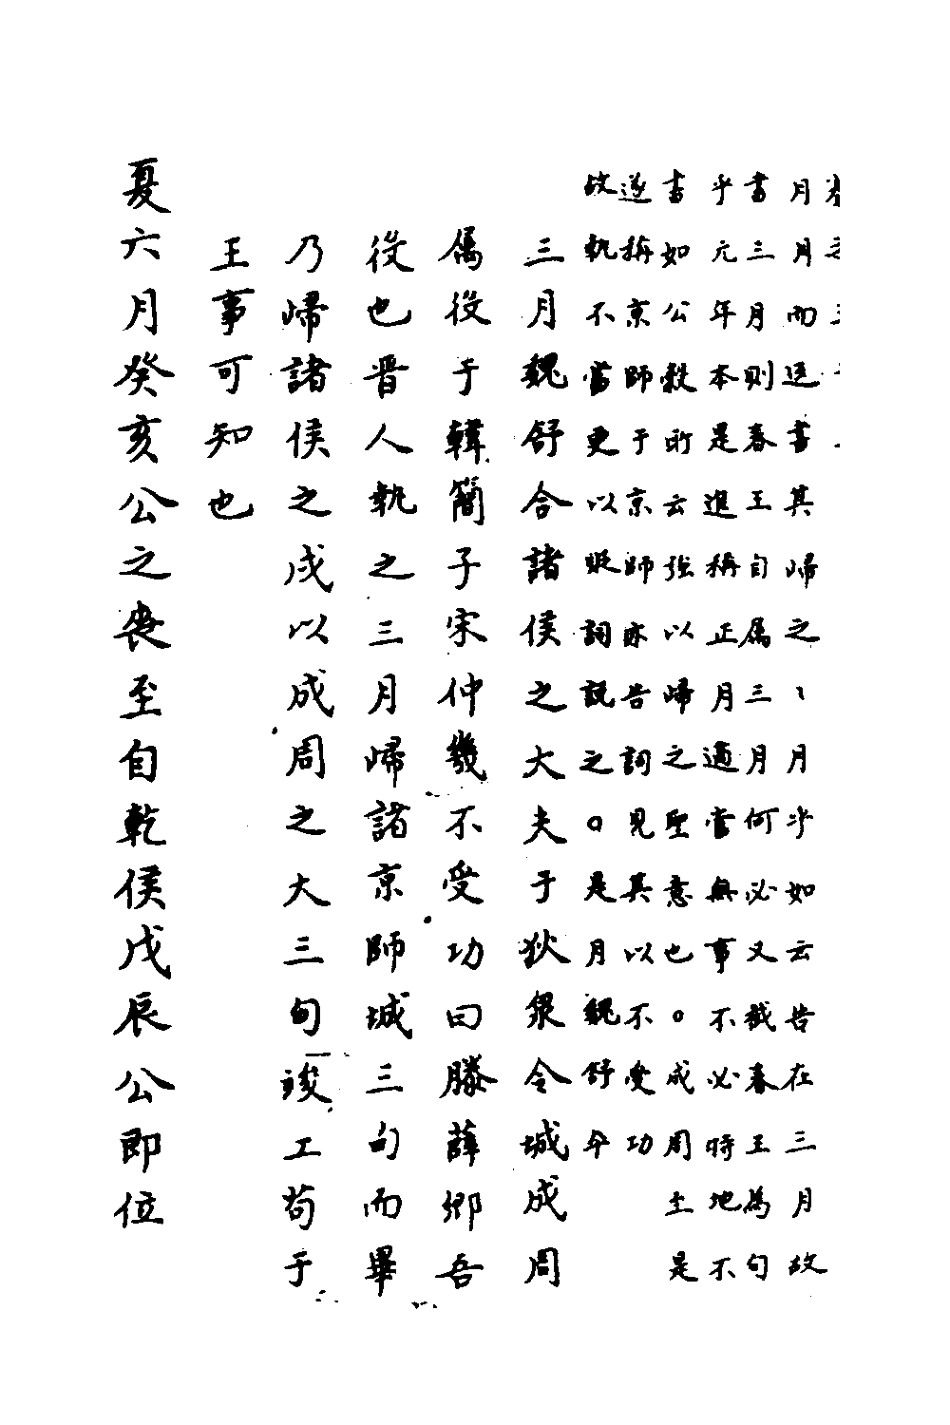 月月而逕書其歸之、月乎如云告在三月故
書三月則春王自属三月何必又截春王為句
乎元年本是進稱正月適當無事不必時地不
書如公穀所云強以歸之聖意也。成周土是
遂稱京師于京師亦告詞見其以不受功
故執不當更以貶詞説之。是月魏舒卒
三月魏舒合諸侯之大夫于狄泉令城成周
属役于韓簡子宋仲幾不受功曰滕薛郷吾
役也晋人執之三月歸諸京師城三旬而畢
乃歸諸侯之戍以成周之大三旬竣工苟于
王事可知也
夏六月癸亥公之喪至自乾侯戊辰公即位